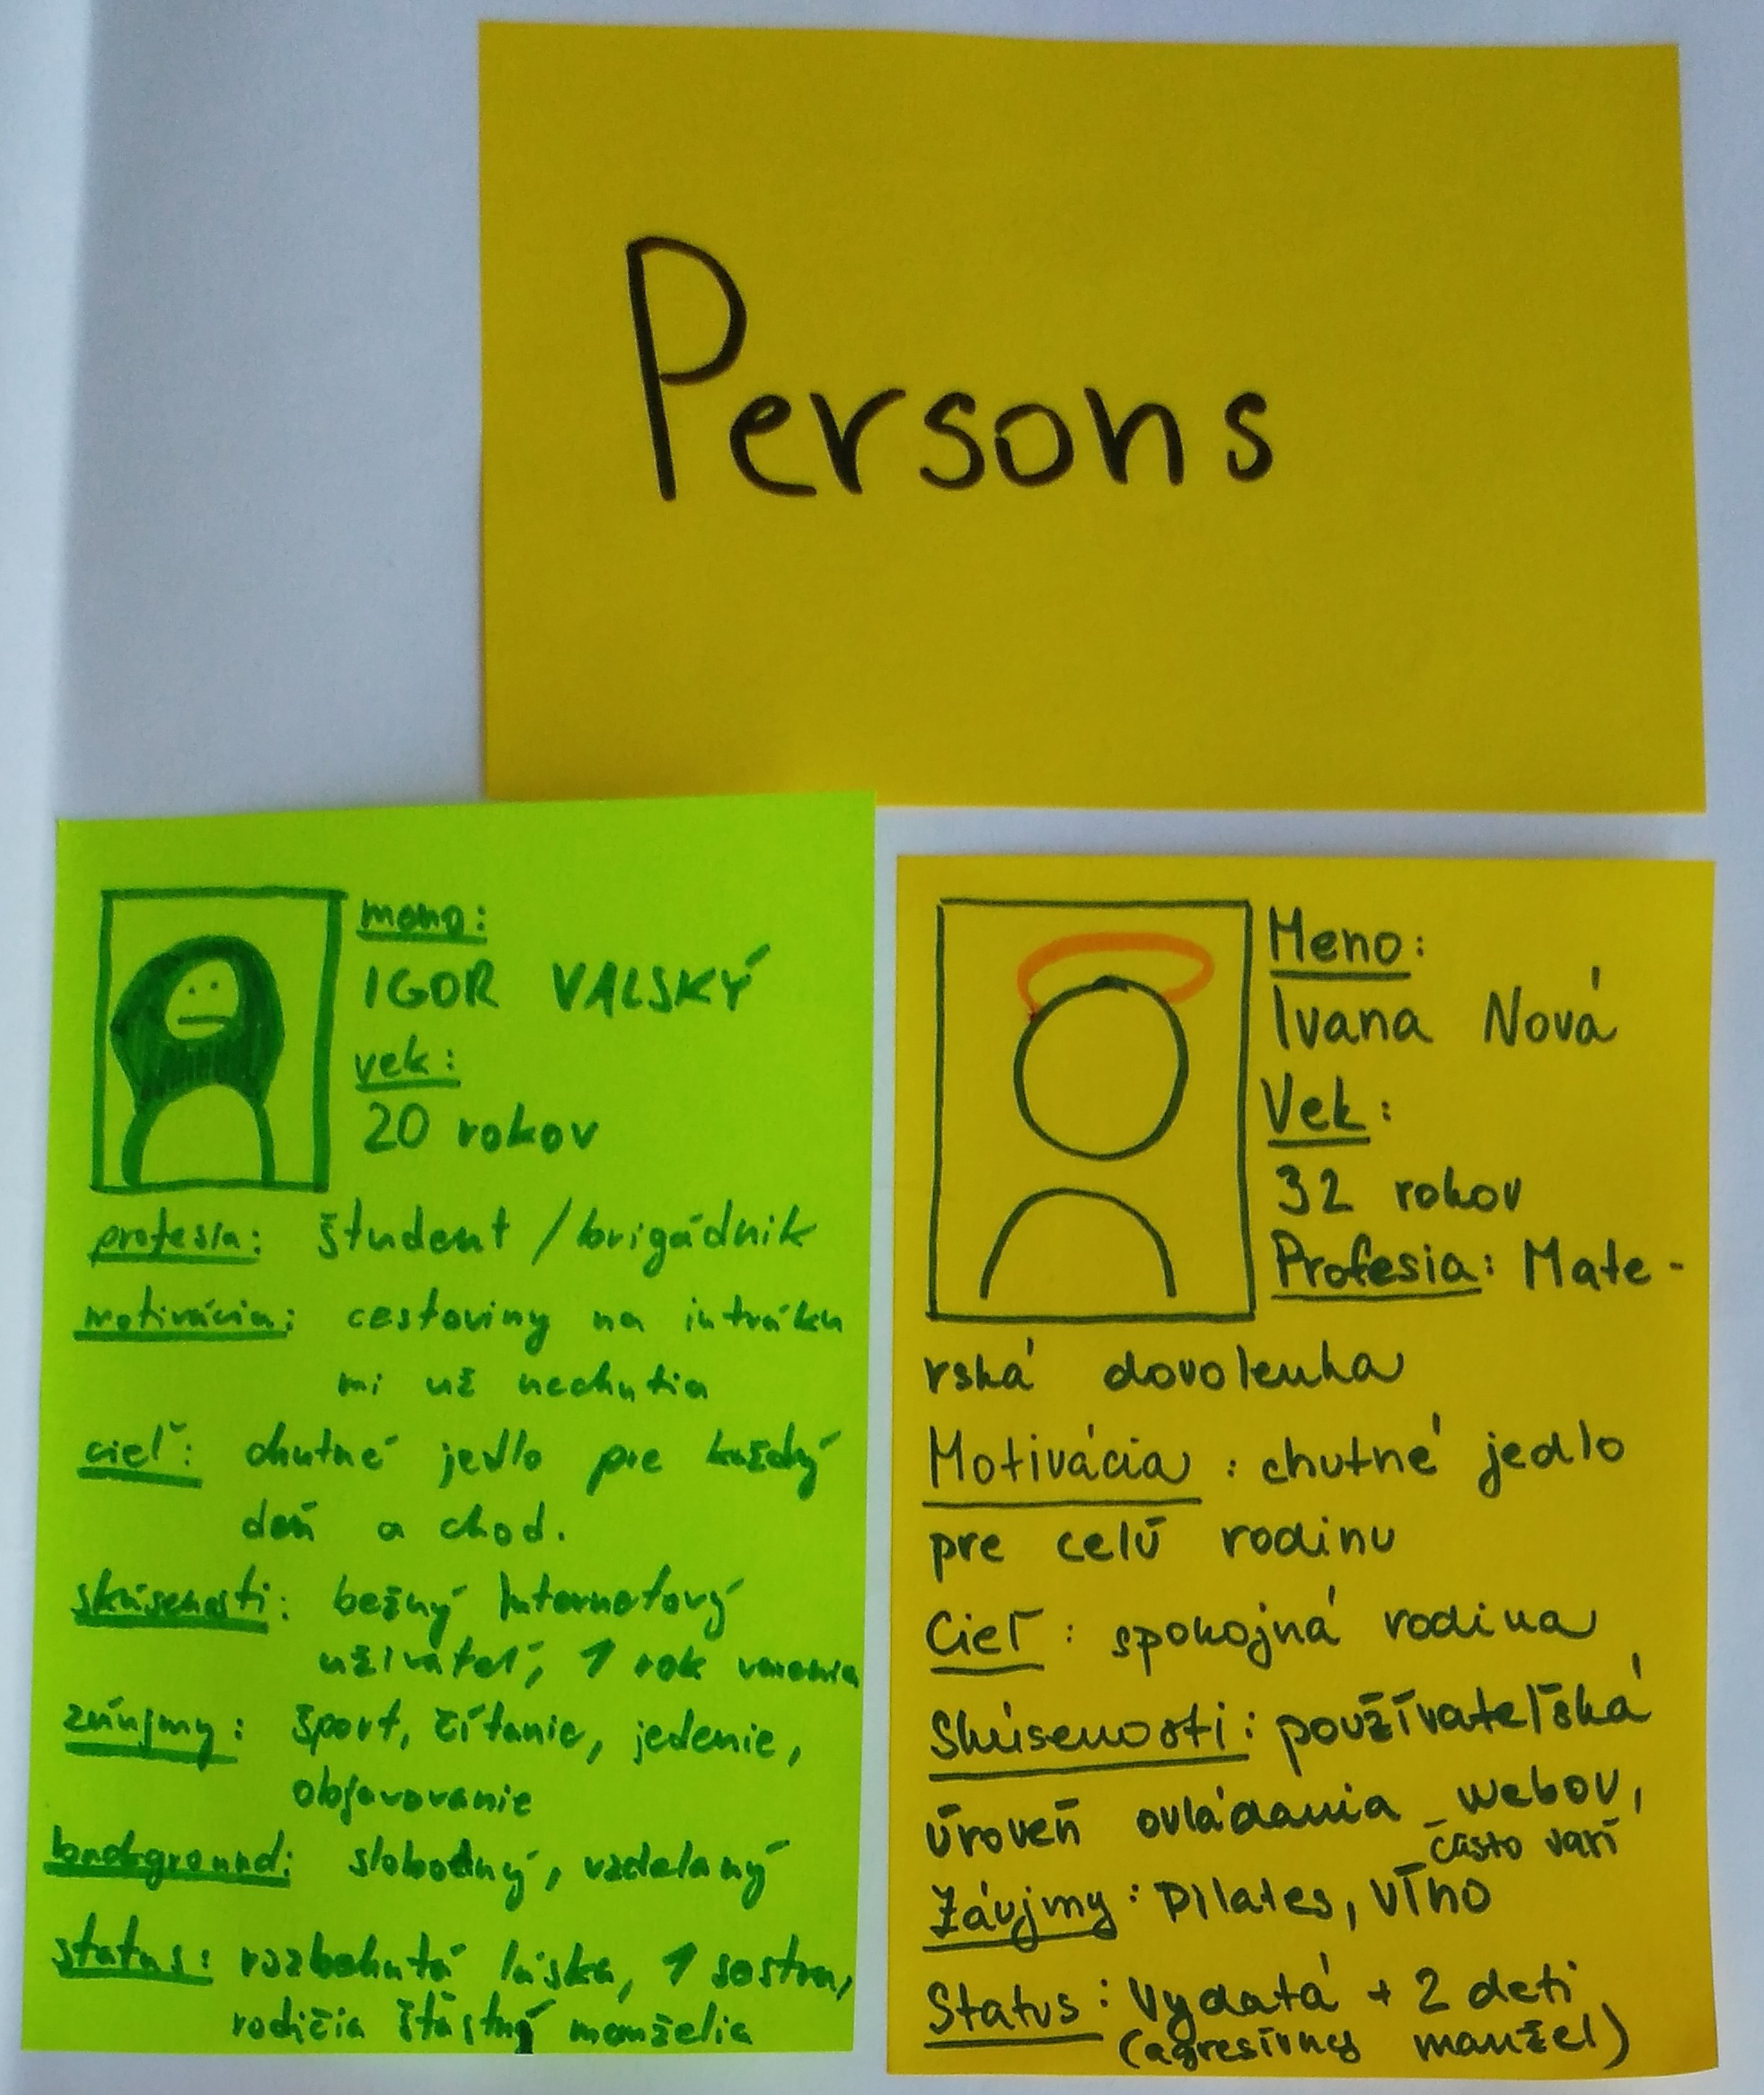 Persons
meno:
IGOR VALSKÝ
vek:
20 rokov
profesia: študent / brigádnik
motivácia: cestoviny na intráku
mi už nechutia
cieľ: chutné jedlo pre každý
deň a chod.
skúsenosti: bežný internetový
užívateľ, 1 rok varenia
záujmy: šport, čítanie, jedenie,
objavovanie
background: slobodný, vzdelaný
status: rozbehnutá láska, 1 sestra,
rodičia šťastný manželia
Meno:
Ivana Nová
Vek:
32 rokov
Profesia: Mate-
rská dovolenka
Motivácia: chutné jedlo
pre celú rodinu
Cieľ: spokojná rodina
Skúsenosti: používateľská
úroveň ovládania webov,
často varí
Záujmy: pilates, víno
Status: Vydatá + 2 deti
(agresívny manžel)